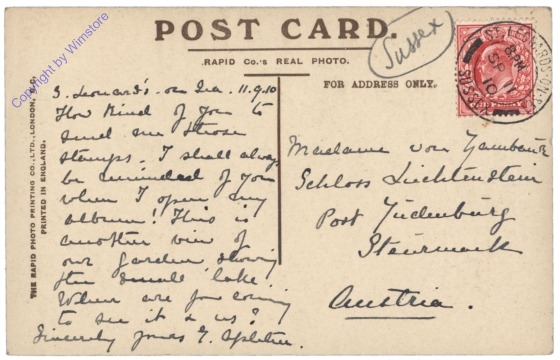 POST CARD.
RAPID Co.'s REAL PHOTO.
Sussex
FOR ADDRESS ONLY.
ST LEONARDS ON SEA
8 PM
SP 11
10
S. Leonard's-on Sea. 11.9.10
How kind of you to
send me those
stamps. I shall always
be reminded of you
when I open my
album! This is
another view of
our garden showing
the small lake.
When are you coming
to see it & us?
Sincerely yours
Madame von
Schloss Liechtenstein
Post Judenburg
Steiermark
Austria.
THE RAPID PHOTO PRINTING CO., LTD., LONDON, E.C.
PRINTED IN ENGLAND.
Copyright by Winstore